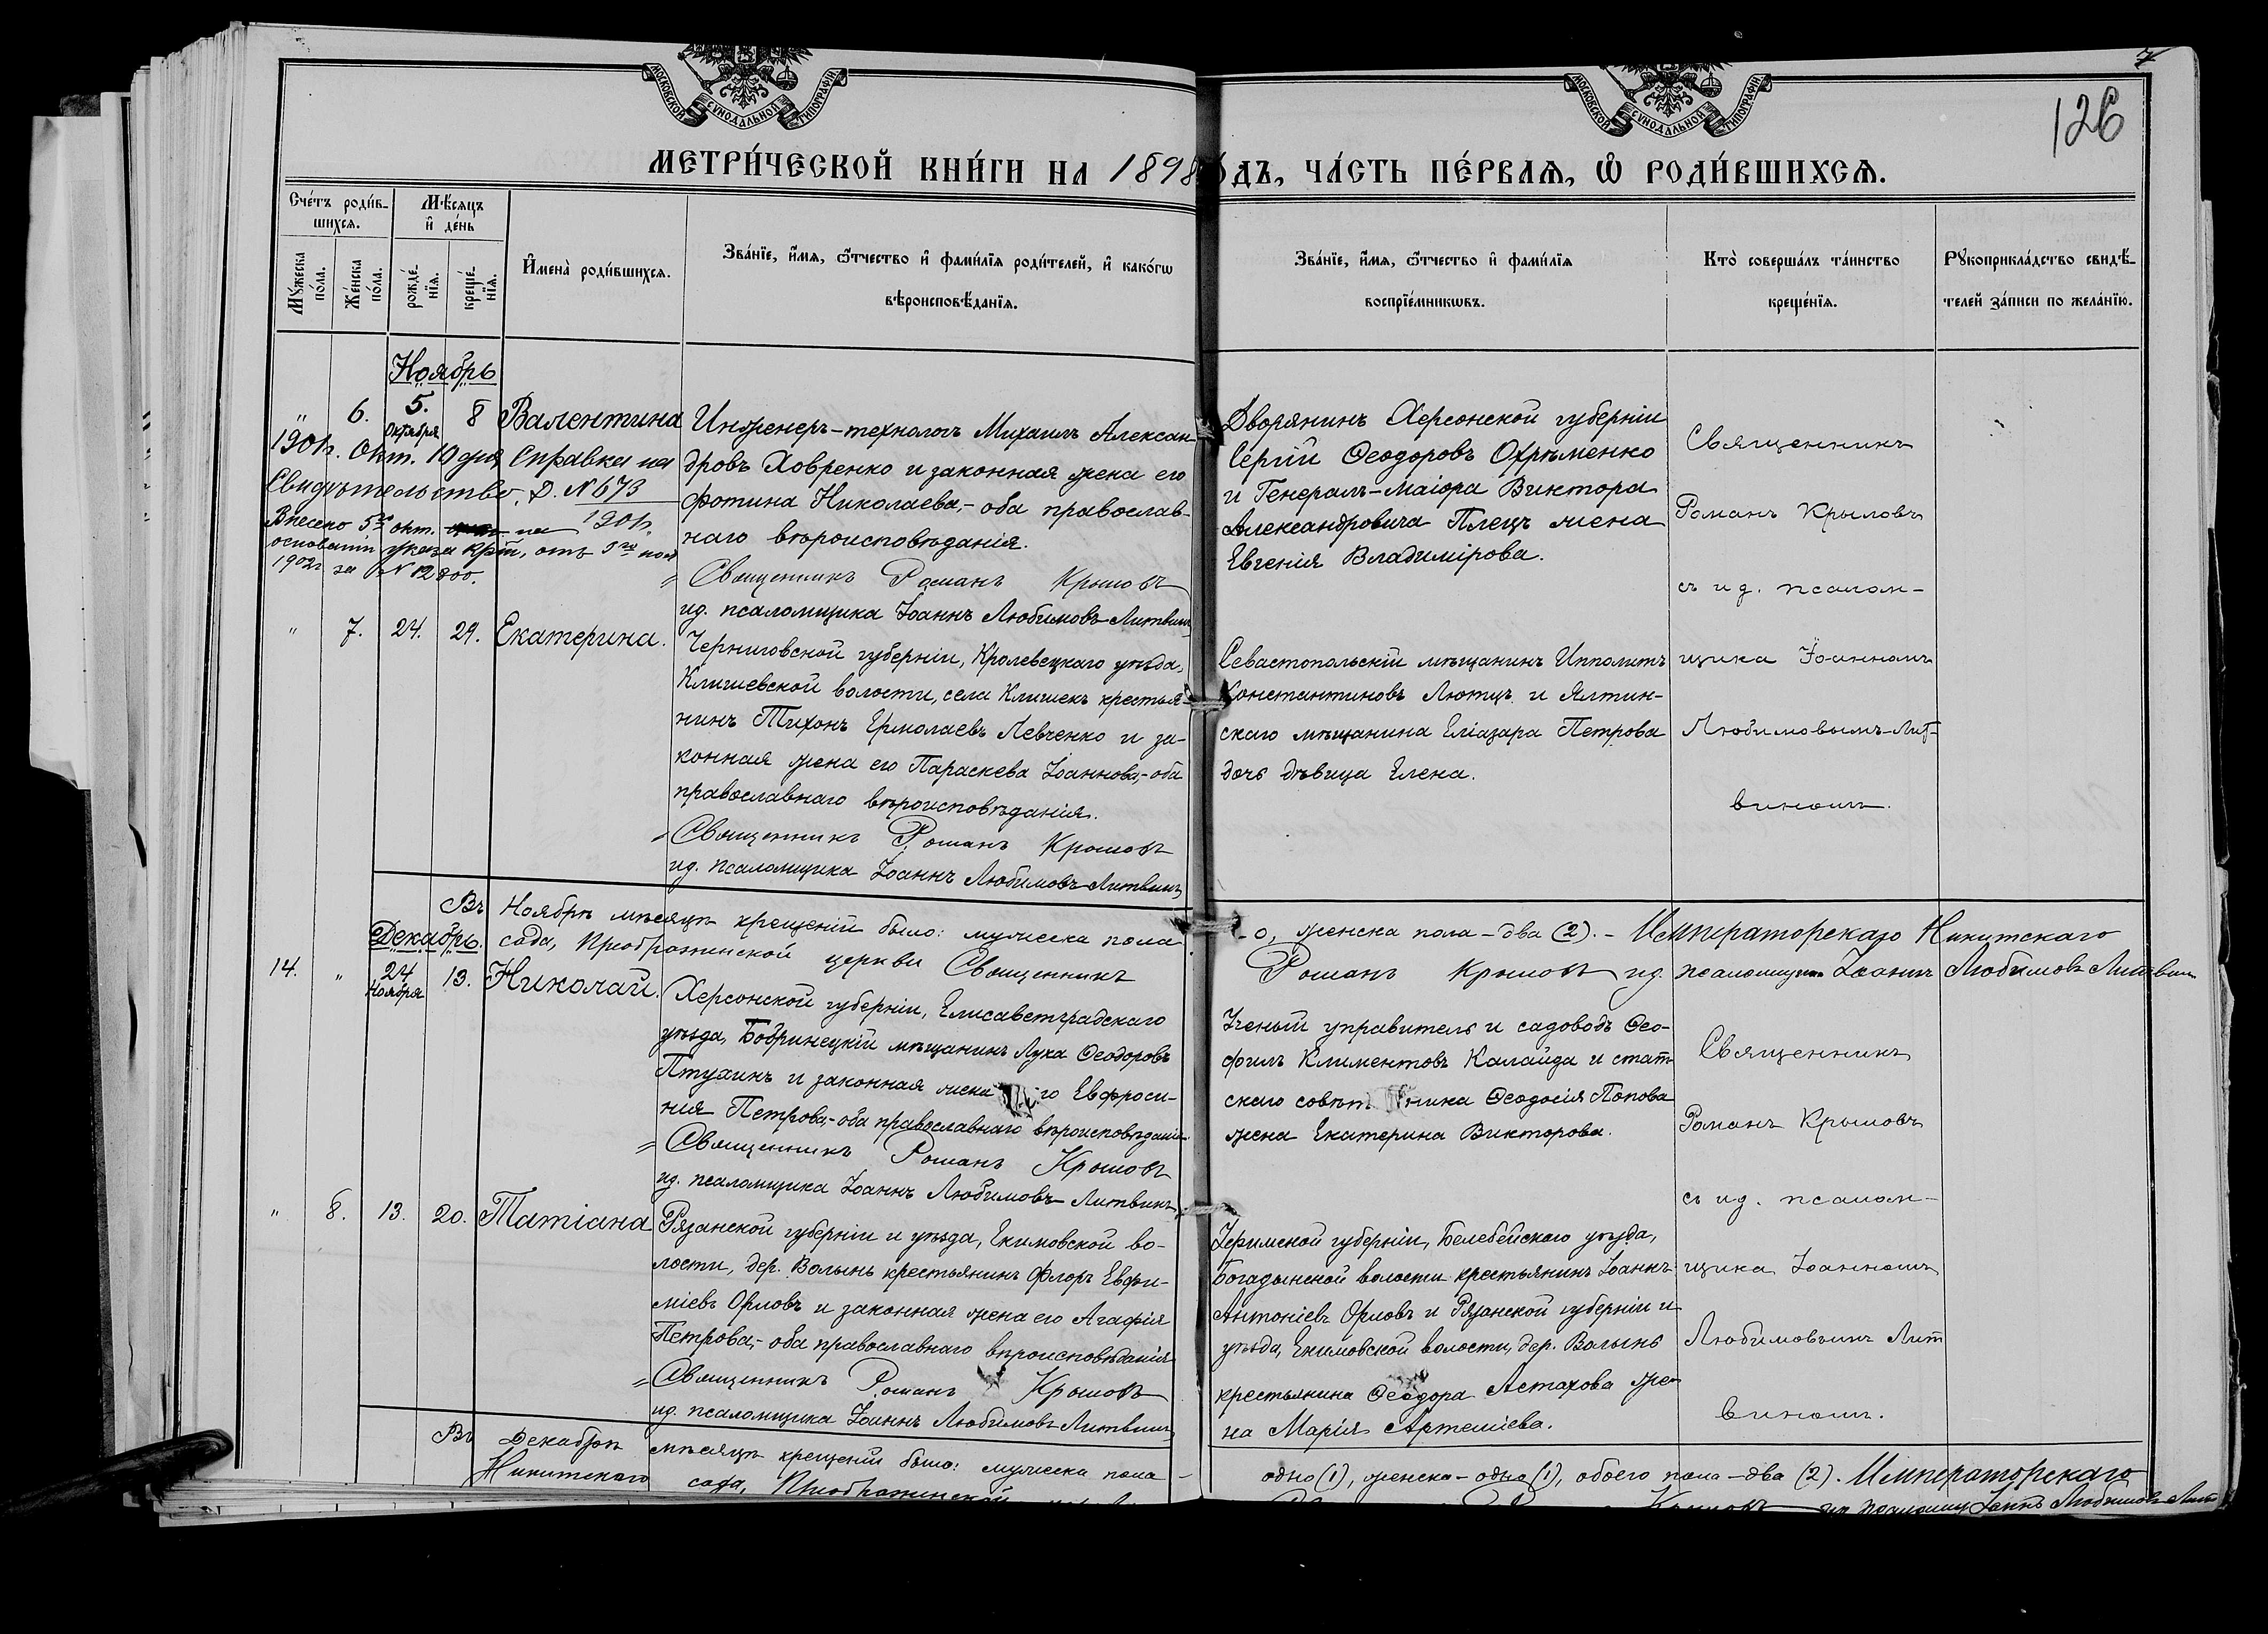 МОСКОВСКОЙ СѴНОДАЛЬНОЙ ТИПОГРАФІИ
МОСКОВСКОЙ СѴНОДАЛЬНОЙ ТИПОГРАФІИ
7
126
МЕТРИ́ЧЕСКОЙ КНИ́ГИ НА 1898 ОДЪ, ЧА́СТЬ ПЕ́РВАѦ, Ѡ҆ РОДИ́ВШИХСѦ.
Сче́тъ роди́в-
шихсѧ.
Мѣ́сѧцъ
и҆ де́нь
Мꙋ́жеска по́ла.
Же́нска по́ла.
рожде́-нїѧ.
креще́-нїѧ.
И҆мена̀ роди́вшихсѧ.
Зва́нїе, и҆́мѧ, ѻ҆́тчество и҆ фами́лїѧ роди́телей, и҆ како́гѡ
вѣроисповѣ́данїѧ.
Зва́нїе, и҆́мѧ, ѻ҆́тчество и҆ фами́лїѧ
воспрїе́мникѡвъ.
Кто̀ соверша́лъ та́инство
креще́нїѧ.
Рꙋкоприкла́дство свидѣ́-
телей за́писи по жела́нїю.
Ноябрь
" 6. 5. Октября 8 Валентина
1901г. Окт. 10 дня Справка на
Свидѣтельство. Д. № 673
Внесено 5го окт. на 1901г.
основаніи указа от 9го ноя
1902г за № 12800.
Инженеръ-технологъ Михаилъ Алексан-
дровъ Ховренко и законная жена его
Фотина Николаева,- оба православ-
наго вѣроисповѣданія.
Священникъ Романъ Крыловъ
ид. псаломщика Іоаннъ Любимовъ-Литвинъ
Дворянинъ Херсонской губерніи
Сергій Ѳеодоровъ Охрѣменко
и Генералъ-Маіора Виктора
Александровича Плецъ жена
Евгенія Владимірова.
Священникъ
Романъ Крыловъ
съ ид. псалом-
щика Іоанномъ
Любимовымъ-Лит-
виномъ.
" 7. 24. 29. Екатерина.
Черниговской губерніи, Кролевецкаго уѣзда,
Клишевской волости, села Клишекъ крестья-
нинъ Тихонъ Ермолаевъ Левченко и за-
конная жена его Параскева Іоаннова,- оба
православнаго вѣроисповѣданія.
Священникъ Романъ Крыловъ
ид. псаломщика Іоаннъ Любимовъ-Литвинъ
Севастопольскій мѣщанинъ Ипполитъ
Константиновъ Лютцъ и Ялтин-
скаго мѣщанина Еліазара Петрова
дочь дѣвица Елена.
Въ Ноябрѣ мѣсяцѣ крещеній было: мужеска пола - 0, женска пола - два (2). - Императорскаго Никитскаго
сада, Преображенской церкви Священникъ Романъ Крыловъ ид. псаломщика Іоаннъ Любимовъ Литвинъ
Декабрь.
14. " 24 Ноября 13. Николай.
Херсонской губерніи, Елисаветградскаго
уѣзда, Бобринецкій мѣщанинъ Лука Ѳеодоровъ
Птухинъ и законная жена его Евфроси-
нія Петрова,- оба православнаго вѣроисповѣданія
Священникъ Романъ Крыловъ
ид. псаломщика Іоаннъ Любимовъ-Литвинъ
Ученый управитель и садоводъ Ѳео-
филъ Климентовъ Калайда и стат-
скаго совѣтника Ѳеодосія Попова
жена Екатерина Викторова.
Священникъ
Романъ Крыловъ
съ ид. псалом-
щика Іоанномъ
Любимовымъ Лит
виномъ.
" 8. 13. 20. Татіана
Рязанской губерніи и уѣзда, Екимовской во-
лости, дер. Волынь крестьянинъ Флоръ Евфи-
міевъ Орловъ и законная жена его Агафія
Петрова,- оба православнаго вѣроисповѣданія
Священникъ Романъ Крыловъ
ид. псаломщика Іоаннъ Любимовъ-Литвинъ
Уфимской губерніи, Белебейскаго уѣзда,
Богадынской волости крестьянинъ Іоаннъ
Антоніевъ Орловъ и Рязанской губерніи и
уѣзда, Екимовской волости, дер. Волынь
крестьянина Ѳеодора Астахова же-
на Марія Артеміева.
Въ Декабрѣ мѣсяцѣ крещеній было: мужеска пола - одно (1), женска - одно (1), обоего пола - два (2). Императорскаго
Никитскаго сада, Преображенской